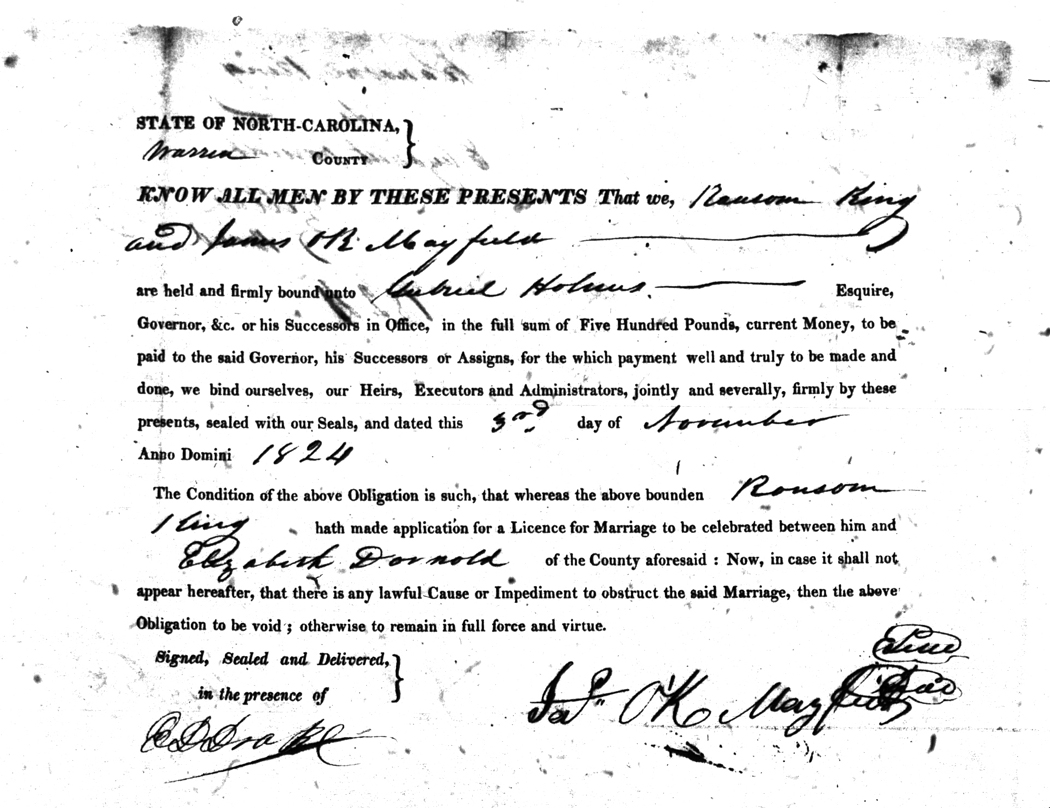 STATE OF NORTH-CAROLINA,
Warren COUNTY
KNOW ALL MEN BY THESE PRESENTS That we, Ransom King
and James OK Mayfield
are held and firmly bound unto Gabriel Holmes. Esquire,
Governor, &c. or his Successors in Office, in the full sum of Five Hundred Pounds, current Money, to be
paid to the said Governor, his Successors or Assigns, for the which payment well and truly to be made and
done, we bind ourselves, our Heirs, Executors and Administrators, jointly and severally, firmly by these
presents, sealed with our Seals, and dated this 3rd day of November
Anno Domini 1824
The Condition of the above Obligation is such, that whereas the above bounden Ransom
King hath made application for a Licence for Marriage to be celebrated between him and
Elizabeth Darnold of the County aforesaid : Now, in case it shall not
appear hereafter, that there is any lawful Cause or Impediment to obstruct the said Marriage, then the above
Obligation to be void ; otherwise to remain in full force and virtue.
Signed, Sealed and Delivered,
in the presence of
C D Drake
Jas O'K Mayfield